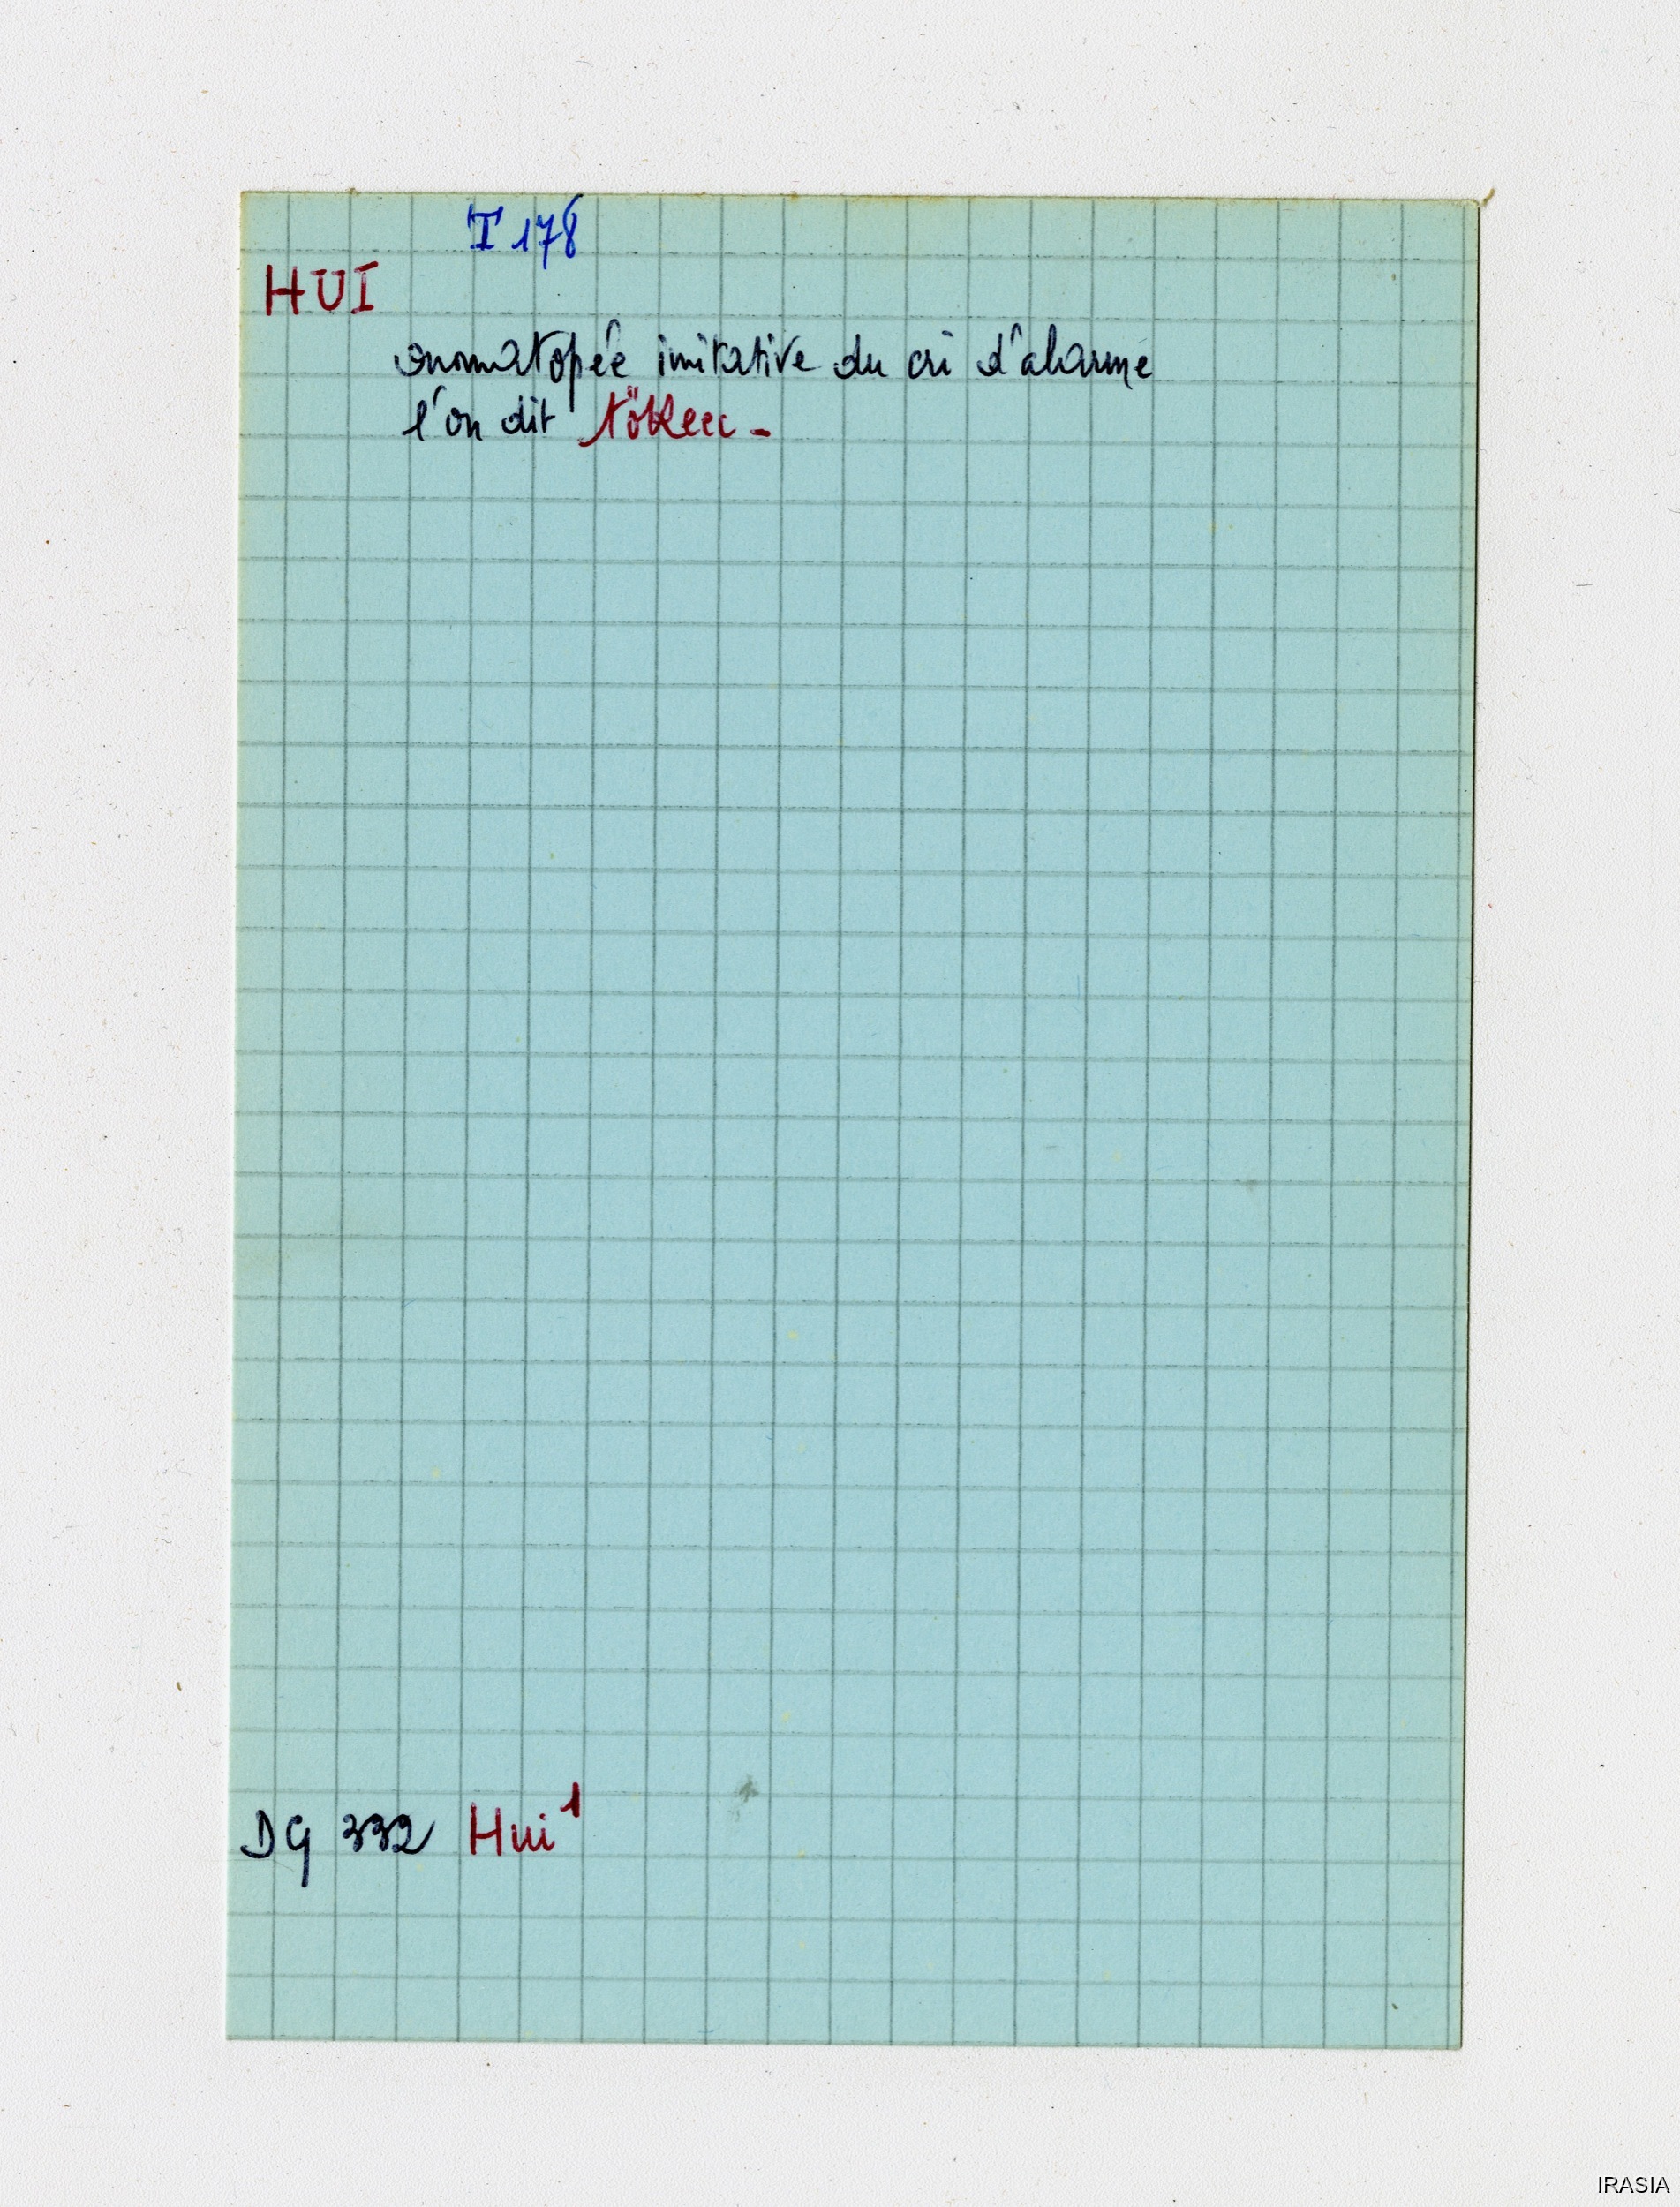 T 178
HUI
onomatopée imitative du cri d'alarme
l'on dit tökeu -
DG 332 Hui¹
IRASIA